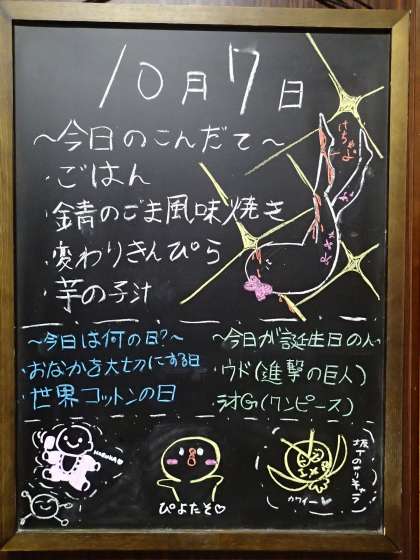 10月7日
～今日のこんだて～
・ごはん
・鯖のごま風味焼き
・変わりきんぴら
・芋の子汁
～今日は何の日?～
・おなかを大切にする日
・世界コットンの日
～今日が誕生日の人～
・ウド(進撃の巨人)
・ラオG(ワンピース)
ぴよたそ♡
カワイー♡